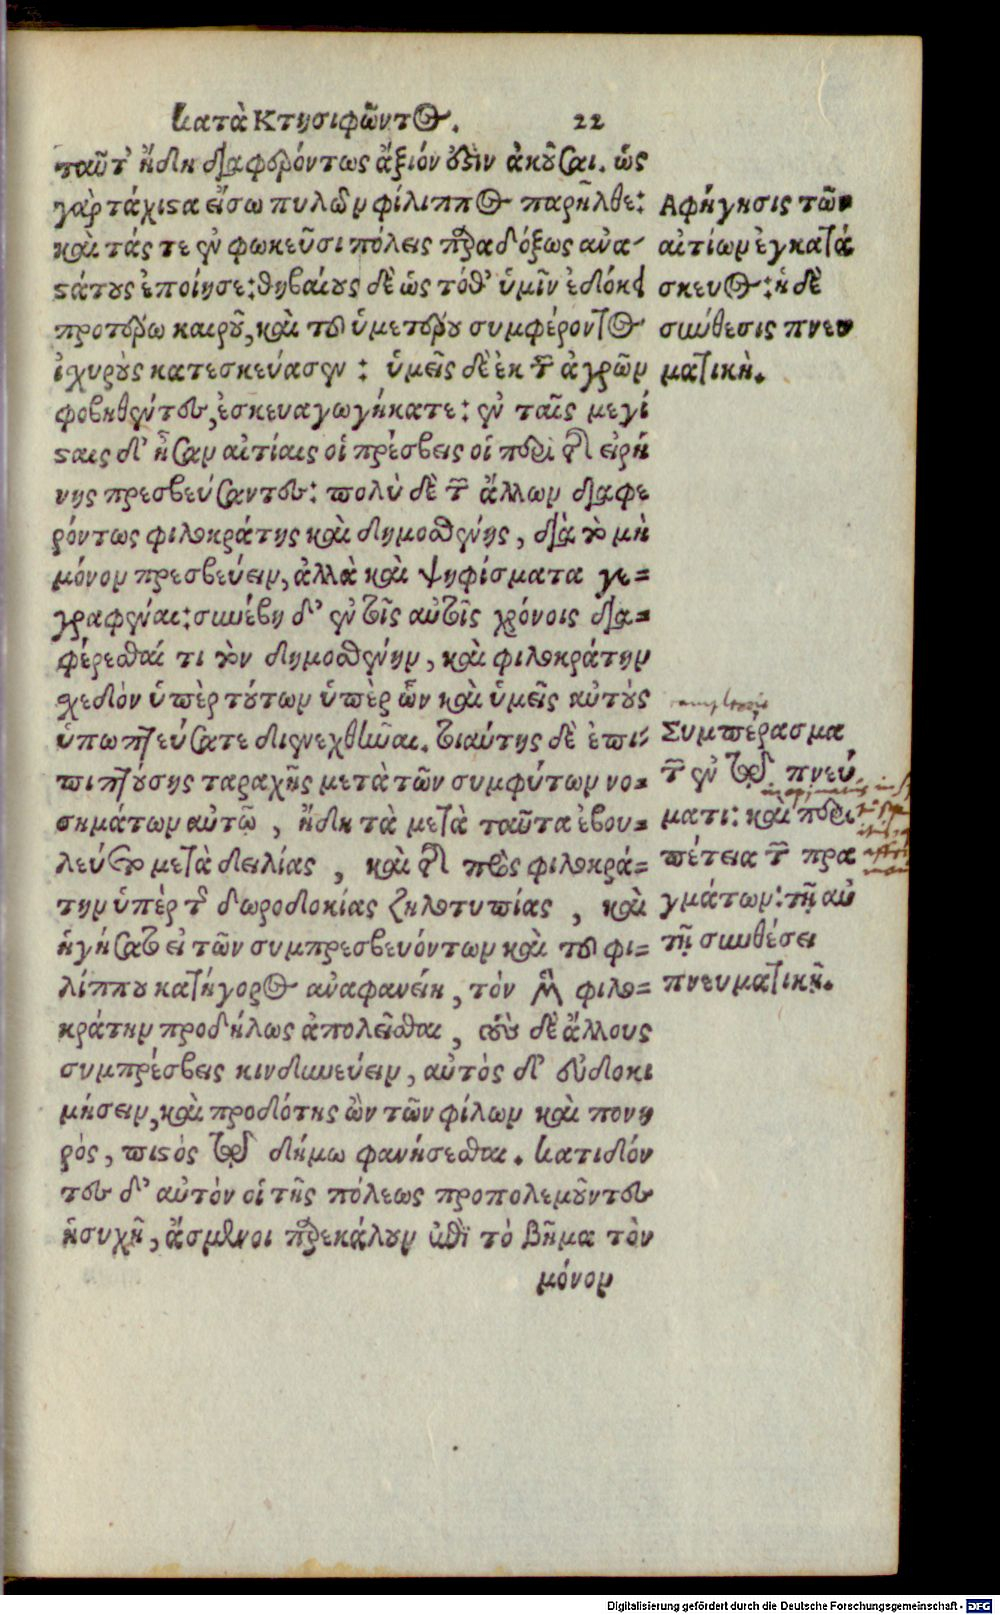 Κατὰ Κτησιφῶντος. 22
ταῦτ' ἤδη διαφερόντως ἄξιόν ἐστιν ἀκοῦσαι. ὡς
γὰρ τάχιστα εἴσω πυλῶν φίλιππος παρῆλθε:
καὶ τάς τε ἐν φωκεῦσι πόλεις παραδόξως ἀνα-
στάτους ἐποίησε: θηβαίους δὲ ὡς τόθ' ὑμῖν ἐδόκει
προτέρω καιροῦ, καὶ τοῦ ὑμετέρου συμφέροντος
ἰχυροὺς κατεσκεύασεν: ὑμεῖς δὲ ἐκ τῶν ἀγρῶν
φοβηθέντες, ἐσκευαγωγήκατε: ἐν ταῖς μεγί
σταις δ' ἦσαν αἰτίαις οἱ πρέσβεις οἱ περὶ τῆς εἰρή
νης πρεσβεύσαντες: πολὺ δὲ τῶν ἄλλων διαφε
ρόντως φιλοκράτης καὶ δημοσθένης, διὰ τὸ μὴ
μόνον πρεσβεύειν, ἀλλὰ καὶ ψηφίσματα γε-
γραφέναι: συνέβη δ' ἐν τοῖς αὐτοῖς χρόνοις δια-
φέρεσθαί τι τὸν δημοσθένην, καὶ φιλοκράτην
σχεδὸν ὑπὲρ τούτων ὑπὲρ ὧν καὶ ὑμεῖς αὐτοὺς
ὑπωπτεύσατε διενεχθῆναι. τοιαύτης δὲ ἐπι-
πιπτούσης ταραχῆς μετὰ τῶν συμφύτων νο-
σημάτων αὐτῷ, ἤδη τὰ μετὰ ταῦτα ἐβου-
λεύετο μετὰ δειλίας, καὶ τῆς πρὸς φιλοκρά-
την ὑπὲρ τῆς δωροδοκίας ζηλοτυπίας, καὶ
ἡγήσατο εἰ τῶν συμπρεσβευόντων καὶ τοῦ φι-
λίππου κατήγορος ἀναφανείη, τὸν μὲν φιλο-
κράτην προδήλως ἀπολεῖσθαι, τοὺς δὲ ἄλλους
συμπρέσβεις κινδυνεύειν, αὐτὸς δ' εὐδοκι
μήσειν, καὶ προδότης ὢν τῶν φίλων καὶ πονη
ρὸς, πιστὸς τῷ δήμω φανήσεσθαι. Κατιδόν
τες δ' αὐτὸν οἱ τῆς πόλεως προπολεμοῦντες
ἡσυχῆ, ἄσμενοι παρεκάλουν ἐπὶ τὸ βῆμα τὸν
μόνον
Αφήγησις τῶν
αἰτίων ἐγκατά
σκευος: ἡ δὲ
σύνθεσις πνευ
ματικὴ.
Συμπέρασμα
τῶν ἐν τῷ πνεύ
ματι: καὶ περι
πέτεια τῶν πρα
γμάτων: τῇ αὐ
τῇ συνθέσει
πνευματικῇ.
Digitalisierung gefördert durch die Deutsche Forschungsgemeinschaft - DFG